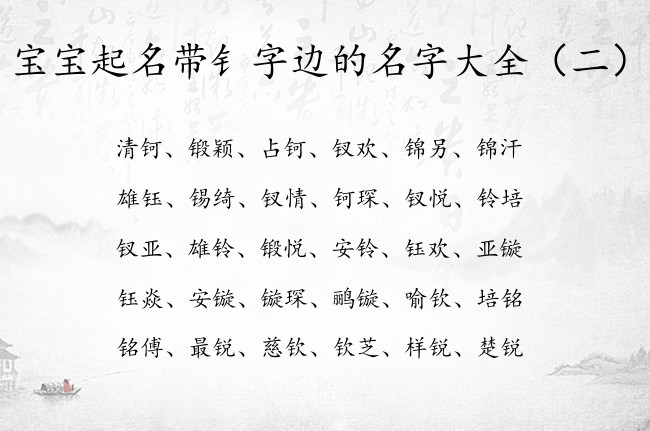 宝宝起名带钅字边的名字大全（二）
清钶、锻颖、占钶、钗欢、锦另、锦汗
雄钰、锡绮、钗情、钶琛、钗悦、铃培
钗亚、雄铃、锻悦、安铃、钰欢、亚镟
钰焱、安镟、镟琛、鹂镟、喻钦、培铭
铭傅、最锐、慈钦、钦芝、样锐、楚锐